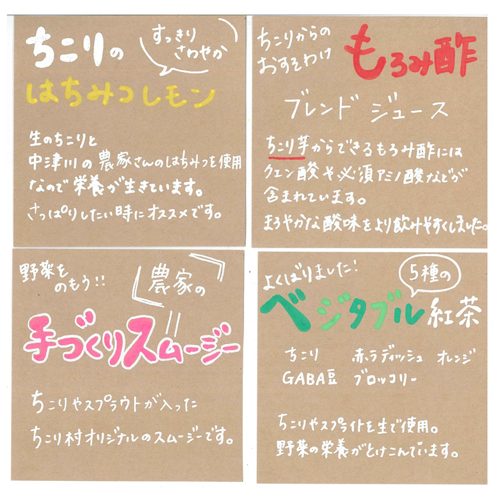 ちこりの
すっきり
さわやか
はちみつレモン
生のちこりと
中津川の農家さんのはちみつを使用
なので栄養が生きています。
さっぱりしたい時にオススメです。
ちこりからの
おすそわけ
もろみ酢
ブレンド ジュース
ちこり芋からできるもろみ酢には
クエン酸や必須アミノ酸などが
含まれています。
まろやかな酸味をより飲みやすくしました。
野菜を
のもう!!
農家の
手づくりスムージー
ちこりやスプラウトが入った
ちこり村オリジナルのスムージーです。
よくばりました!
5種の
ベジタブル紅茶
ちこり 赤ラディッシュ オレンジ
GABA豆 ブロッコリー
ちこりやスプライトを生で使用。
野菜の栄養がとけこんでいます。